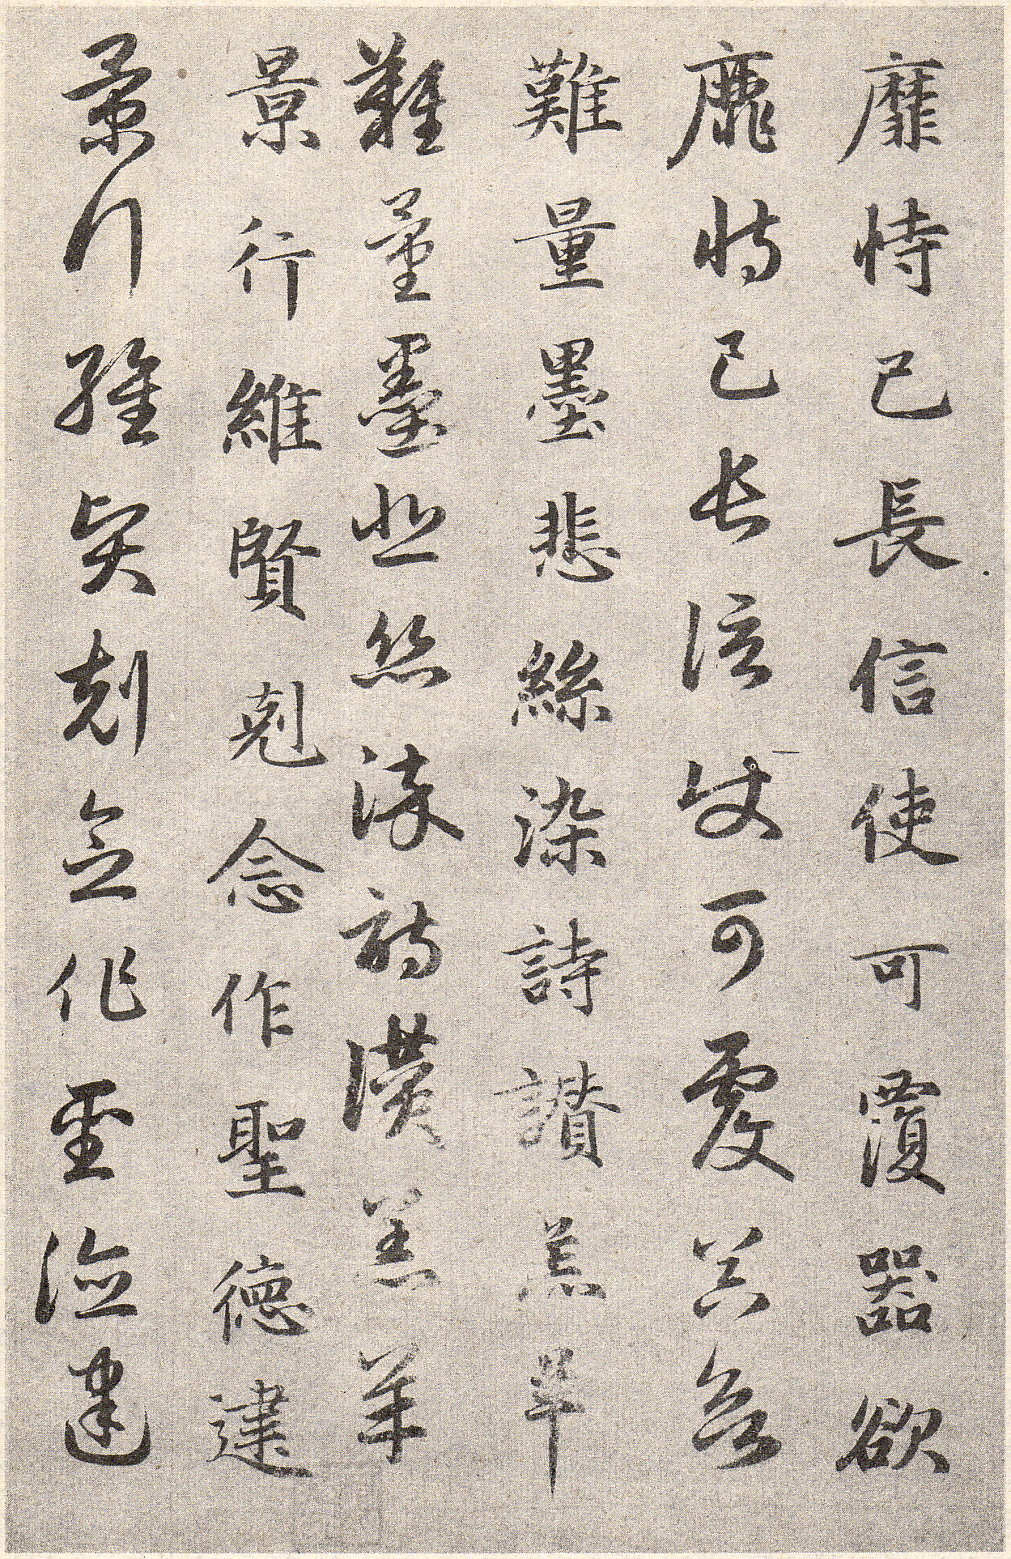 靡恃己長信使可覆器欲
靡恃己長信使可覆器欲
難量墨悲絲染詩讚羔羊
難量墨悲絲染詩讚羔羊
景行維賢剋念作聖德建
景行維賢剋念作聖德建